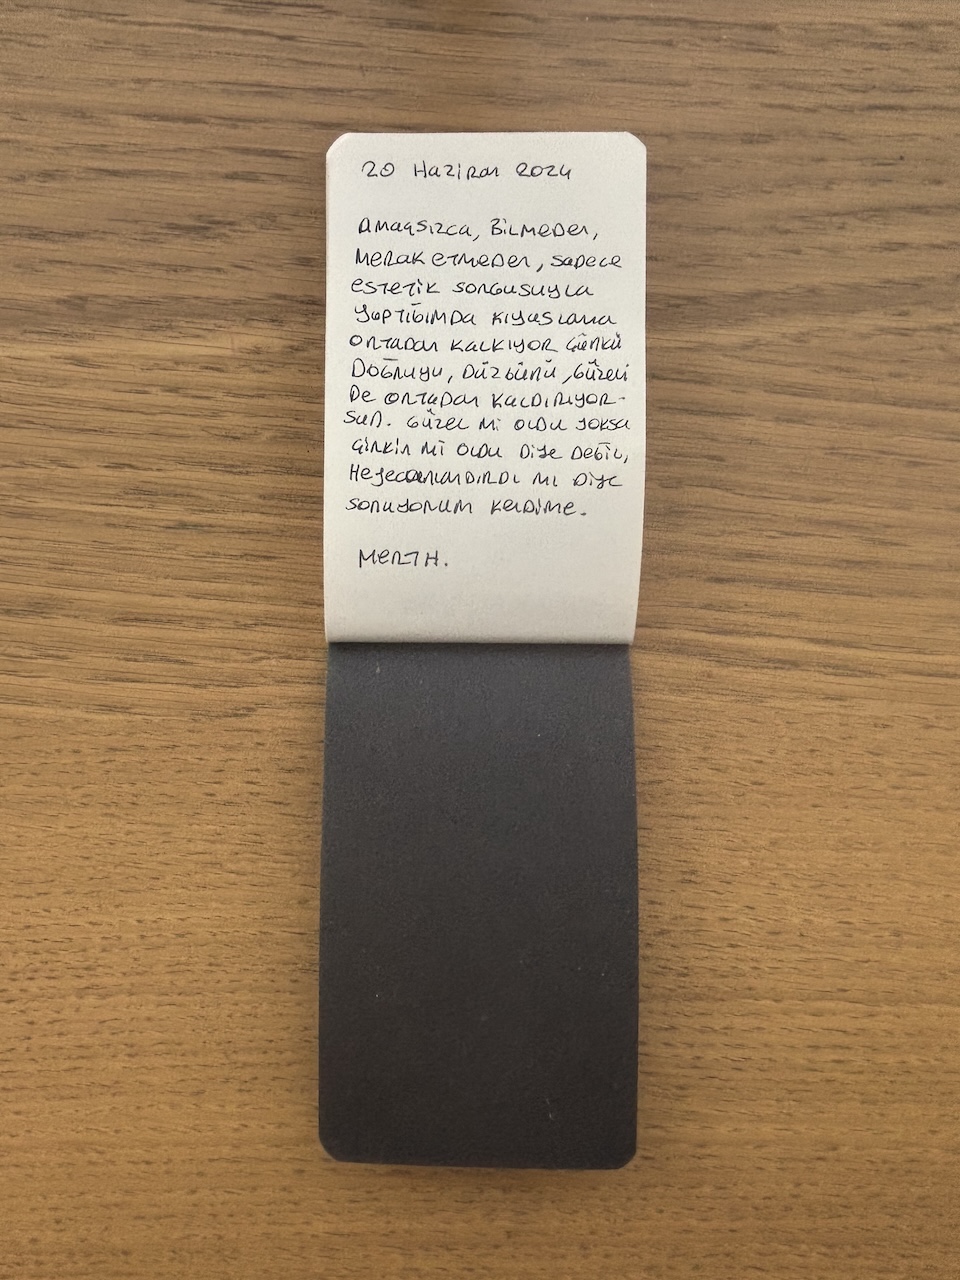 20 Haziran 2024
Amaçsızca, Bilmeden,
Merak etmeden, sadece
estetik sorgusuyla
yaptığımda kıyaslama
ortadan kalkıyor çünkü
Doğruyu, Düzgünü, Güzeli
De ortadan kaldırıyor-
sun. Güzel mi oldu yoksa
çirkin mi oldu diye değil,
Heyecanlandırdı mı diye
soruyorum kendime.
Mert H.